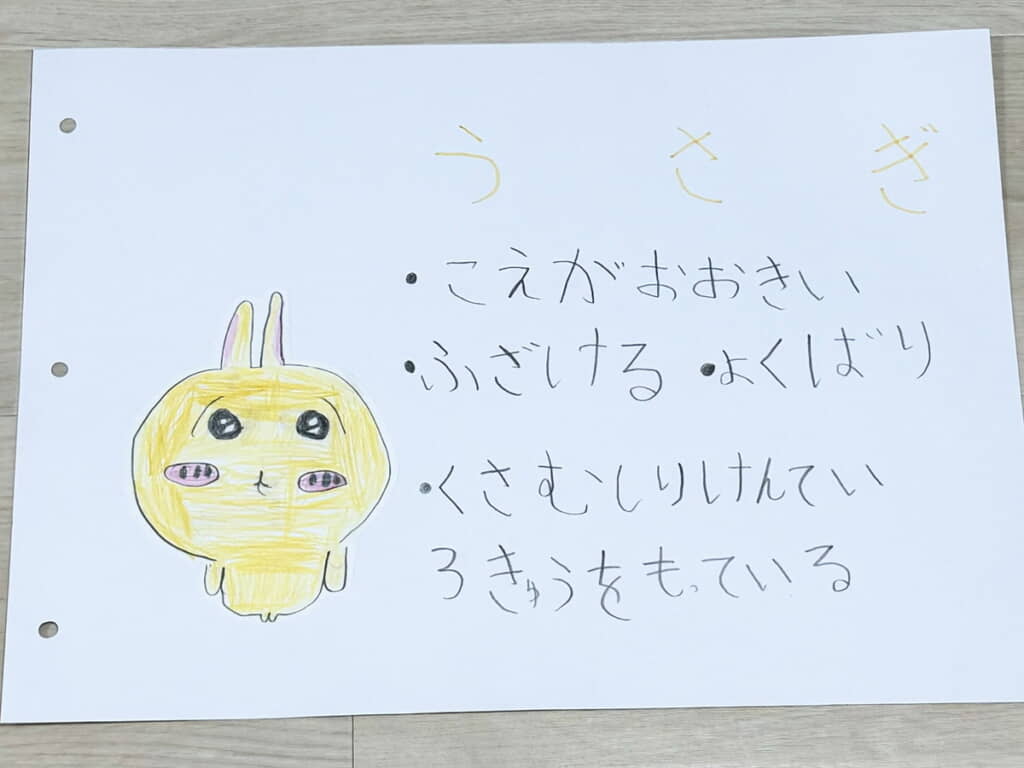 うさぎ
・こえがおおきい
・ふざける ・よくばり
・くさむしりけんてい
3きゅうをもっている